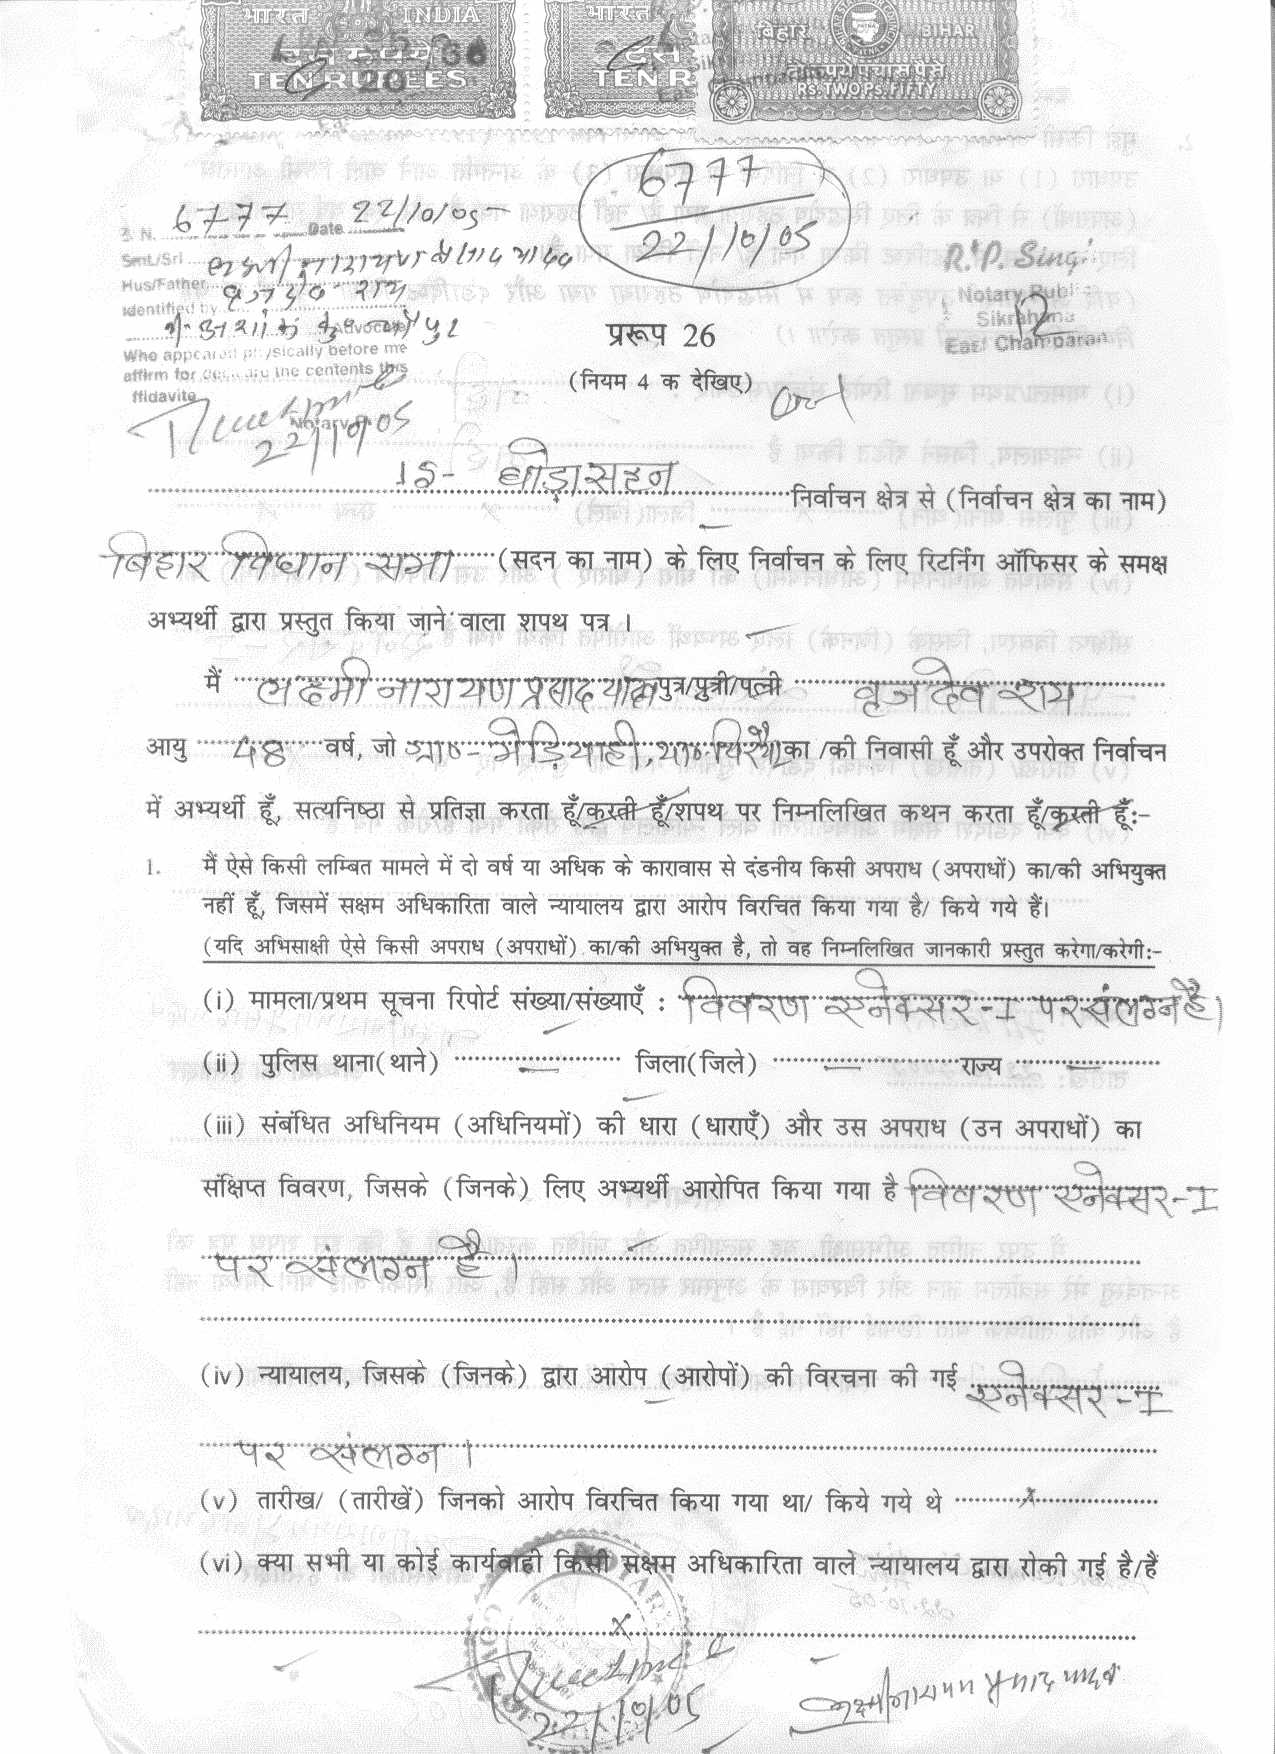 भारत INDIA
TEN RUPEES
भारत
TEN R
बिहार BIHAR
RS. TWO Ps. FIFTY
6777
22/10/05
S. N. 6777 Date 22/10/05
Smt./Sri लक्ष्मी नारायण प्रसाद यादव
Hus/Father बृजदेव राय
Identified by
Advocate
Who appeared physically before me
affirm for declare the contents this
ffidavite
Notary
22/10/05
R.P. Singh
Notary Publi
Sikrahana
East Champaran
12
प्ररूप 26
(नियम 4 क देखिए)
18- घोड़ासहन निर्वाचन क्षेत्र से (निर्वाचन क्षेत्र का नाम)
बिहार विधान सभा (सदन का नाम) के लिए निर्वाचन के लिए रिटर्निंग ऑफिसर के समक्ष
अभ्यर्थी द्वारा प्रस्तुत किया जाने वाला शपथ पत्र ।
मैं लक्ष्मी नारायण प्रसाद यादव पुत्र/पुत्री/पत्नी बृजदेव राय
आयु 48 वर्ष, जो ग्राम- मेड़ियाही, थाना- चिरैया का /की निवासी हूँ और उपरोक्त निर्वाचन
में अभ्यर्थी हूँ, सत्यनिष्ठा से प्रतिज्ञा करता हूँ/करती हूँ/शपथ पर निम्नलिखित कथन करता हूँ/करती हूँ:-
1. मैं ऐसे किसी लम्बित मामले में दो वर्ष या अधिक के कारावास से दंडनीय किसी अपराध (अपराधों) का/की अभियुक्त
नहीं हूँ, जिसमें सक्षम अधिकारिता वाले न्यायालय द्वारा आरोप विरचित किया गया है/ किये गये हैं।
(यदि अभिसाक्षी ऐसे किसी अपराध (अपराधों) का/की अभियुक्त है, तो वह निम्नलिखित जानकारी प्रस्तुत करेगा/करेगी:-
(i) मामला/प्रथम सूचना रिपोर्ट संख्या/संख्याएँ : विवरण एनेक्सर-I पर संलग्न है।
(ii) पुलिस थाना(थाने) — जिला(जिले) — राज्य —
(iii) संबंधित अधिनियम (अधिनियमों) की धारा (धाराएँ) और उस अपराध (उन अपराधों) का
संक्षिप्त विवरण, जिसके (जिनके) लिए अभ्यर्थी आरोपित किया गया है विवरण एनेक्सर-I
पर संलग्न है।
(iv) न्यायालय, जिसके (जिनके) द्वारा आरोप (आरोपों) की विरचना की गई एनेक्सर-I
पर संलग्न।
(v) तारीख/ (तारीखें) जिनको आरोप विरचित किया गया था/ किये गये थे x
(vi) क्या सभी या कोई कार्यवाही किसी सक्षम अधिकारिता वाले न्यायालय द्वारा रोकी गई है/हैं
x
22/10/05
लक्ष्मी नारायण प्रसाद यादव